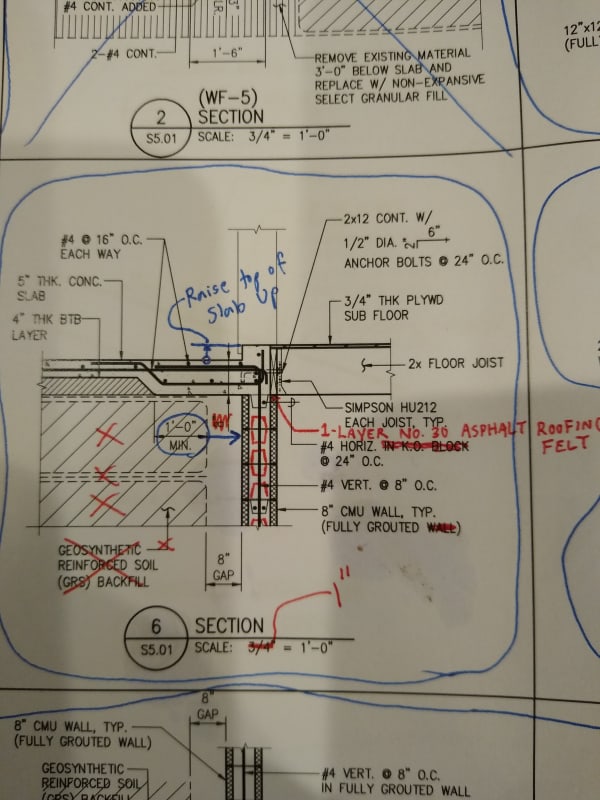 #4 CONT. ADDED
2-#4 CONT.
1'-6"
REMOVE EXISTING MATERIAL
3'-0" BELOW SLAB AND
REPLACE W/ NON-EXPANSIVE
SELECT GRANULAR FILL
12"x12
(FULL
(WF-5)
2
SECTION
S5.01
SCALE: 3/4" = 1'-0"
#4 @ 16" O.C.
EACH WAY
5" THK. CONC.
SLAB
4" THK BTB
LAYER
Raise top of
Slab Up
2x12 CONT. W/
1/2" DIA. 2" 6"
ANCHOR BOLTS @ 24" O.C.
3/4" THK PLYWD
SUB FLOOR
2x FLOOR JOIST
SIMPSON HU212
EACH JOIST, TYP.
1-LAYER NO. 30 ASPHALT ROOFING
FELT
#4 HORIZ. IN K.O. BLOCK
@ 24" O.C.
1'-0"
MIN.
#4 VERT. @ 8" O.C.
8" CMU WALL, TYP.
(FULLY GROUTED WALL)
GEOSYNTHETIC
REINFORCED SOIL
(GRS) BACKFILL
8"
GAP
1"
6
SECTION
S5.01
SCALE: 3/4" = 1'-0"
8"
GAP
8" CMU WALL, TYP.
(FULLY GROUTED WALL)
GEOSYNTHETIC
REINFORCED SOIL
(GRS) BACKFILL
#4 VERT. @ 8" O.C.
IN FULLY GROUTED WALL